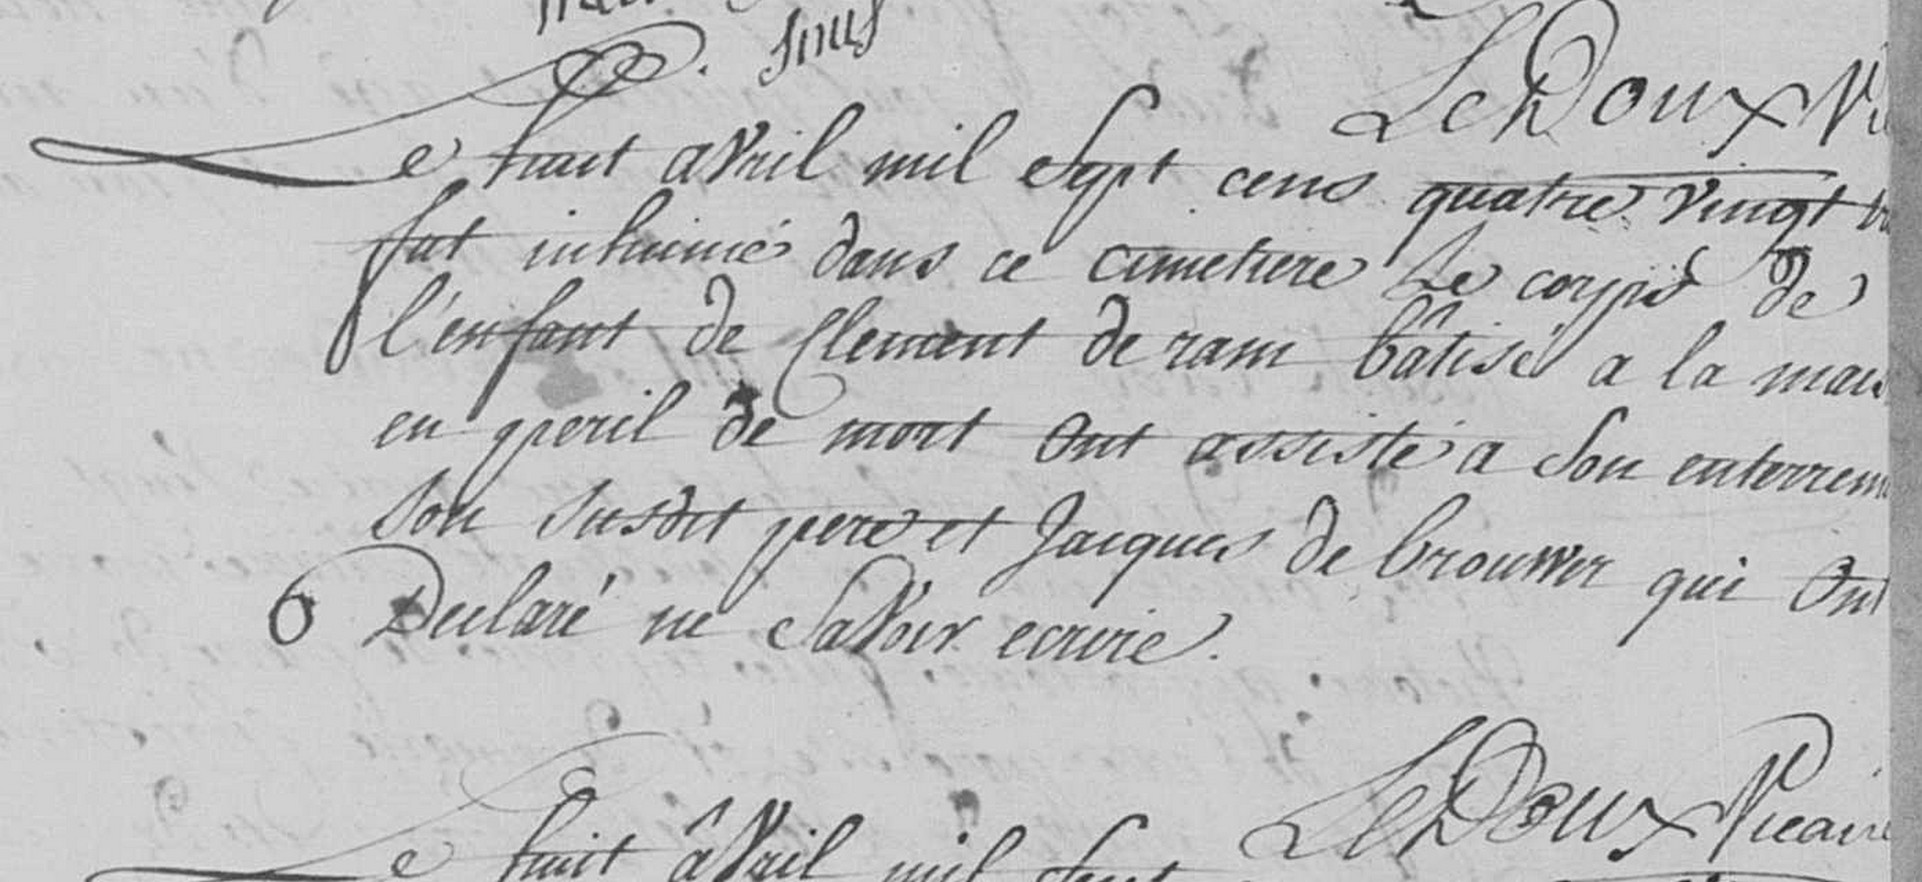 LeDoux
Le huit avril mil sept cens quatre vingt
fut inhumé dans ce cimetiere le corps de
l'enfant de Clement de ram bâtisé a la
en peril de mort ont assisté a son enterrem
son susdit pere et Jacques de brouwer qui ont
6 Declaré ne savoir ecrire.
LeDoux Vicaire
Le huit âvril mil sept